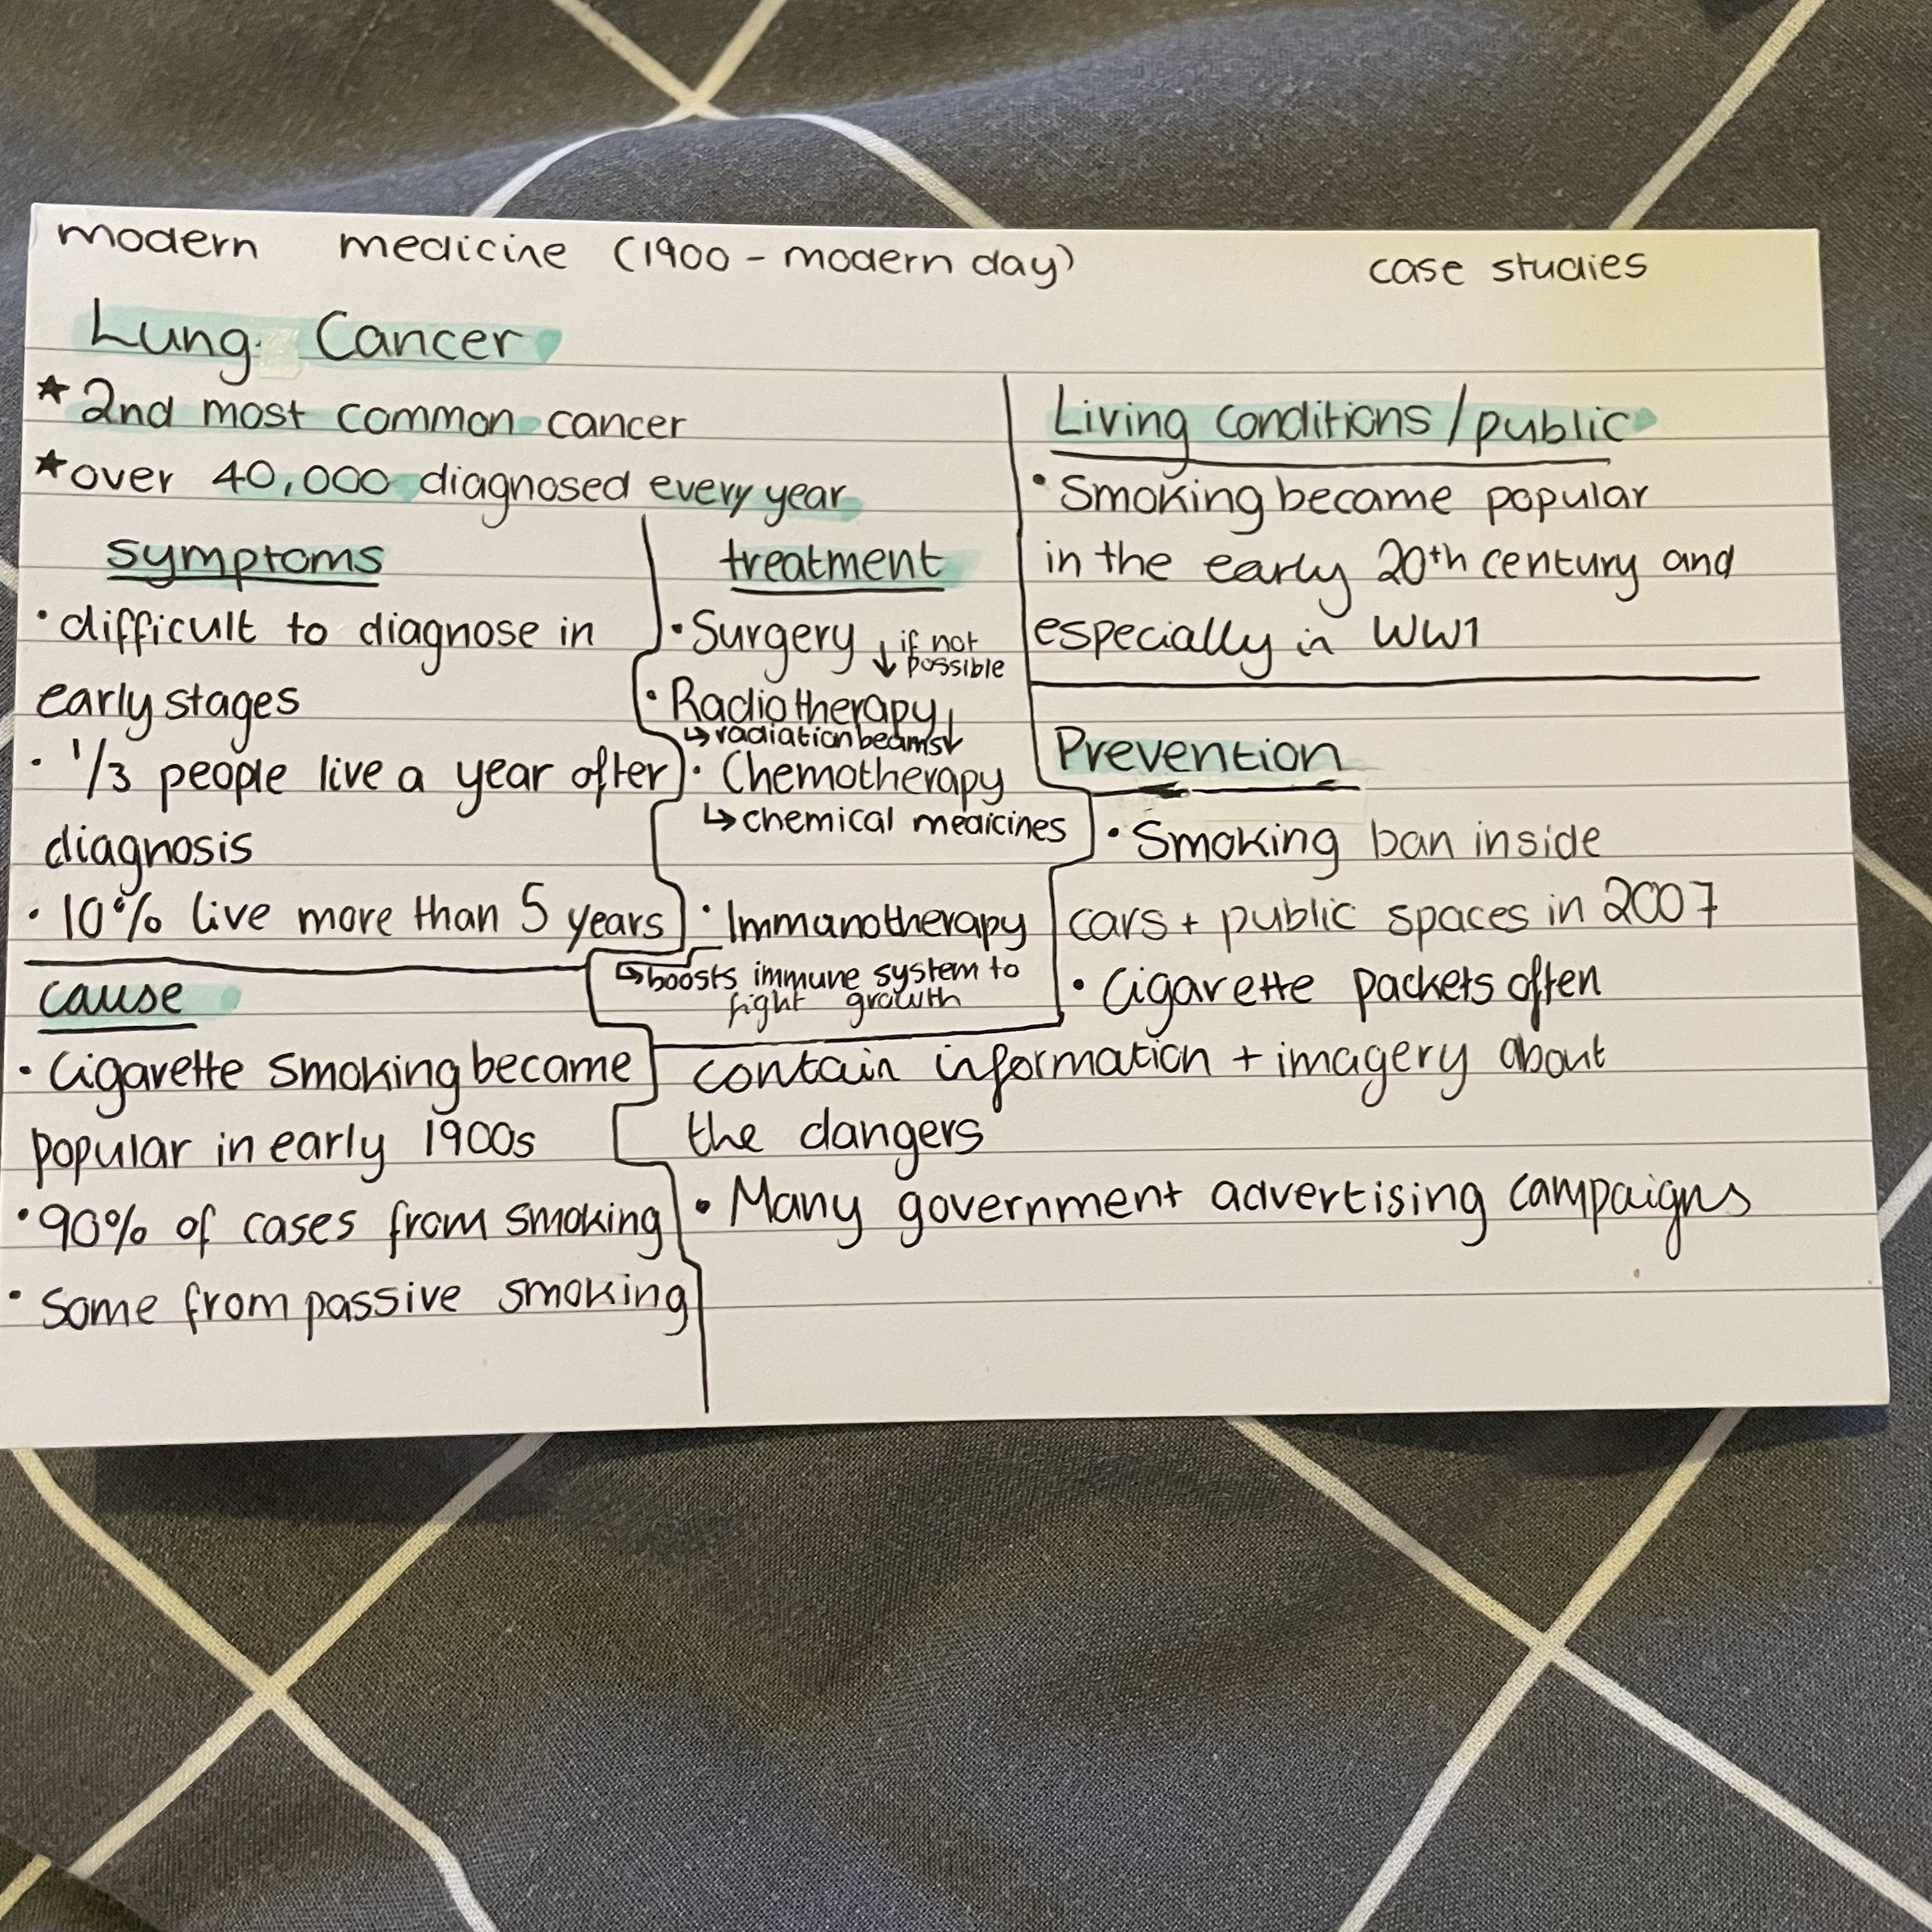 modern medicine (1900 - modern day)
case studies
Lung Cancer
★ 2nd most common cancer
★ over 40,000 diagnosed every year
symptoms
• difficult to diagnose in
early stages
• 1/3 people live a year after
diagnosis
• 10% live more than 5 years
cause
• Cigarette smoking became
popular in early 1900s
• 90% of cases from smoking
• Some from passive smoking
treatment
• Surgery ↓ if not
possible
• Radiotherapy ↓
↳ radiation beams
• Chemotherapy
↳ chemical medicines
• Immanotherapy
↳ boosts immune system to
fight growth
Living conditions / public
• Smoking became popular
in the early 20th century and
especially in WW1
Prevention
• Smoking ban inside
cars + public spaces in 2007
• Cigarette packets often
contain information + imagery about
the dangers
• Many government advertising campaigns